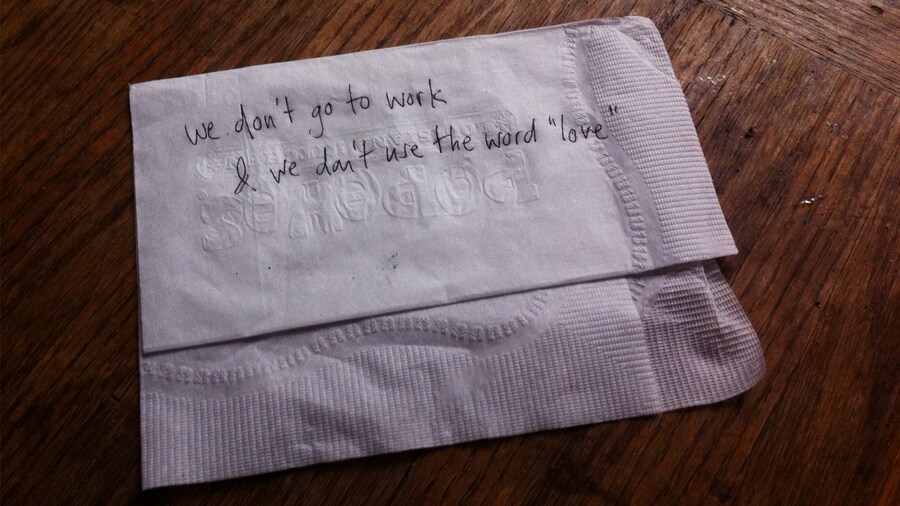 we don't go to work
& we don't use the word "love"
POPEYES